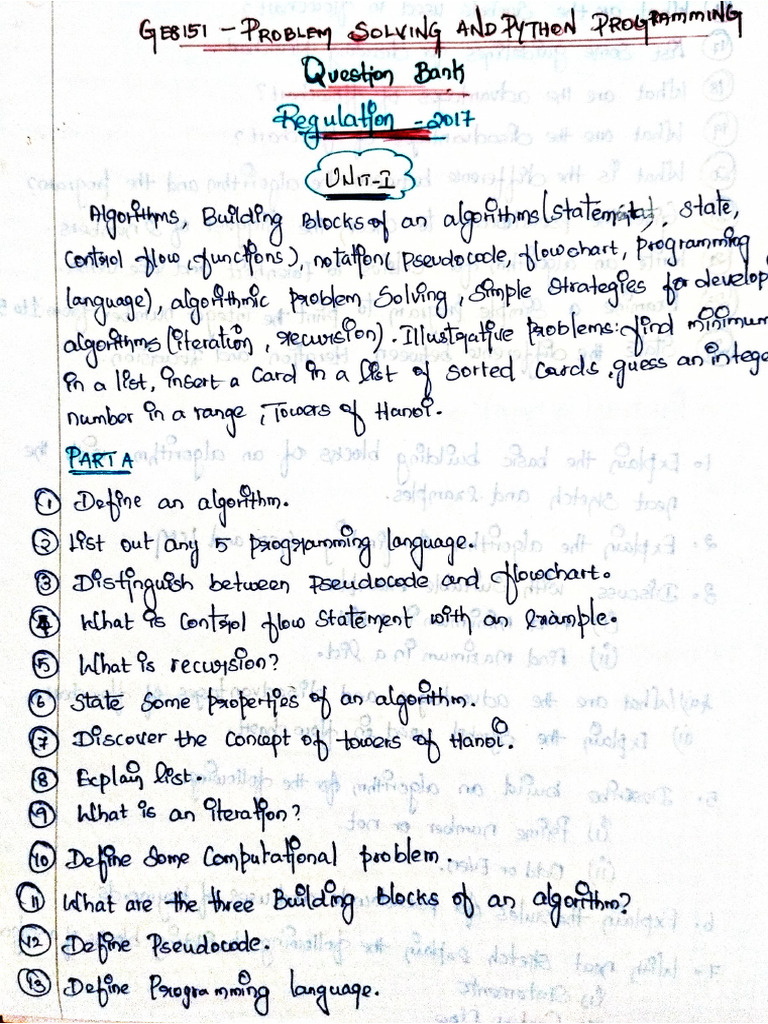 GE8151 - PROBLEM SOLVING AND PYTHON PROGRAMMING
Question Bank
Regulation - 2017
UNIT-I
Algorithms, Building Blocks of an algorithms (Statement, State,
control flow, functions), notation (pseudocode, flowchart, programming
language), algorithmic problem Solving, Simple Strategies for develop
algorithms (iteration, recursion). Illustrative Problems: find minimum
in a list, insert a card in a list of sorted cards, guess an intege
number in a range, Towers of Hanoi.
PART A
1 Define an algorithm.
2 List out any 5 programming language.
3 Distinguish between Pseudocode and flowchart.
4 What is control flow statement with an Example.
5 What is recursion?
6 State Some properties of an algorithm.
7 Discover the Concept of towers of Hanoi.
8 Explain list.
9 What is an iteration?
10 Define Some Computational problem.
11 What are the three Building Blocks of an algorithm?
12 Define Pseudocode.
13 Define Programming language.